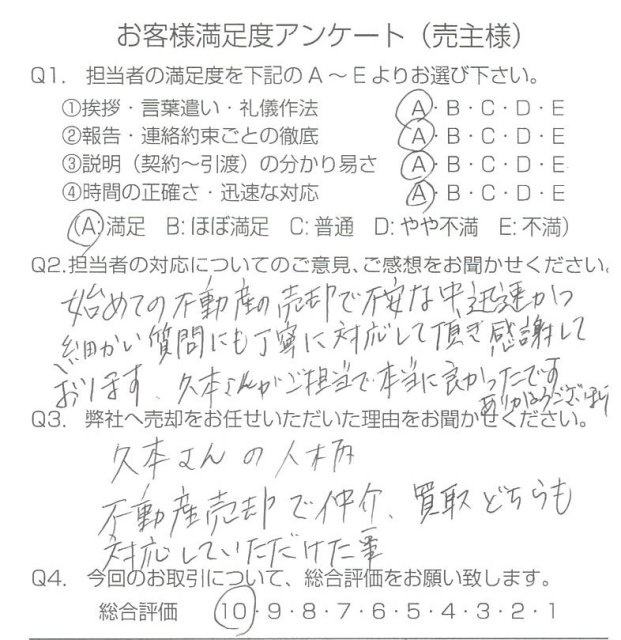 お客様満足度アンケート（売主様）
Q1. 担当者の満足度を下記のA～Eよりお選び下さい。
①挨拶・言葉遣い・礼儀作法 A・B・C・D・E
②報告・連絡約束ごとの徹底 A・B・C・D・E
③説明（契約～引渡）の分かり易さ A・B・C・D・E
④時間の正確さ・迅速な対応 A・B・C・D・E
（A:満足 B:ほぼ満足 C:普通 D:やや不満 E:不満）
Q2.担当者の対応についてのご意見、ご感想をお聞かせください。
始めての不動産の売却で不安な中迅速かつ
細かい質問にも丁寧に対応して頂き感謝して
おります、久本さんがご担当で本当に良かったです
ありがとうございます
Q3. 弊社へ売却をお任せいただいた理由をお聞かせください。
久本さんの人柄
不動産売却で仲介、買取どちらも
対応していただけた事
Q4. 今回のお取引について、総合評価をお願い致します。
総合評価 10・9・8・7・6・5・4・3・2・1